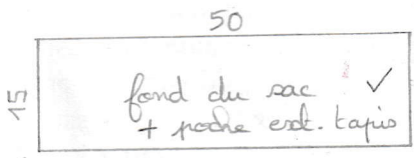 50
15
fond du sac ✓
+ poche ext. tapis